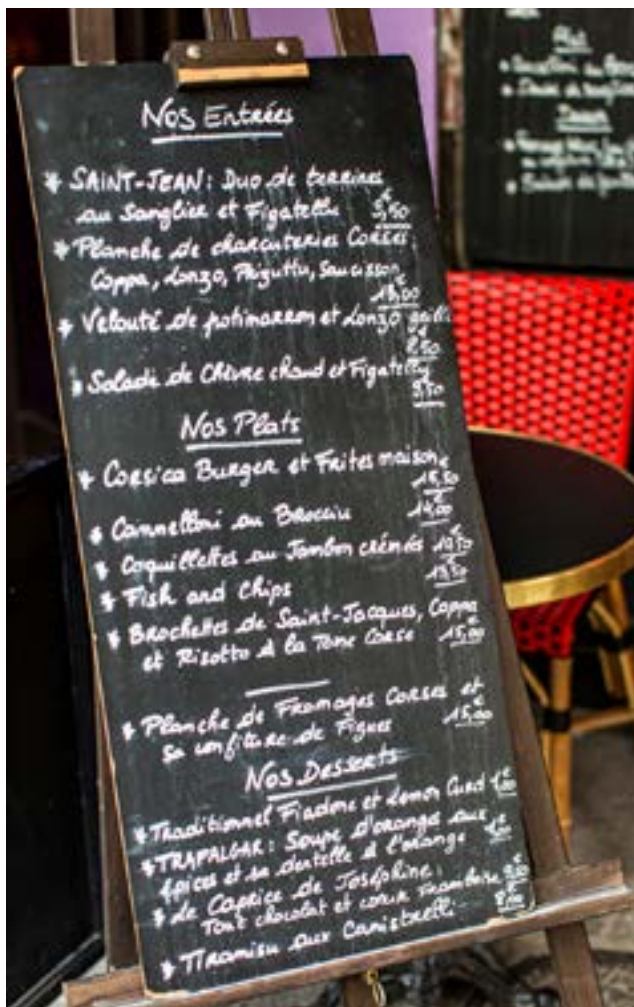 Nos Entrées
* SAINT-JEAN: Duo de terrines
au Sanglier et Figatelli 9,50
* Planche de charcuteries Corses:
Coppa, Lonzo, Prizuttu, Saucisson
* Velouté de potimarron et Lonzo grillé
8,50
* Salade de Chèvre chaud et Figatelli
9,50
Nos Plats
* Corsica Burger et Frites maison
* Cannelloni au Brocciu 14,00
* Coquillettes au Jambon crémés
* Fish and Chips
* Brochettes de Saint-Jacques, Coppa
et Risotto à la Tome Corse 15,00
* Planche de Fromages Corses et
sa confiture de Figues 15,00
Nos Desserts
* Traditionnel Fiadone et Lemon Curd
* TRAFALGAR: Soupe d'oranges aux
épices et sa dentelle à l'orange
* Le Caprice de Joséphine:
Tout chocolat et coeur Framboise
* Tiramisu aux Canistrelli